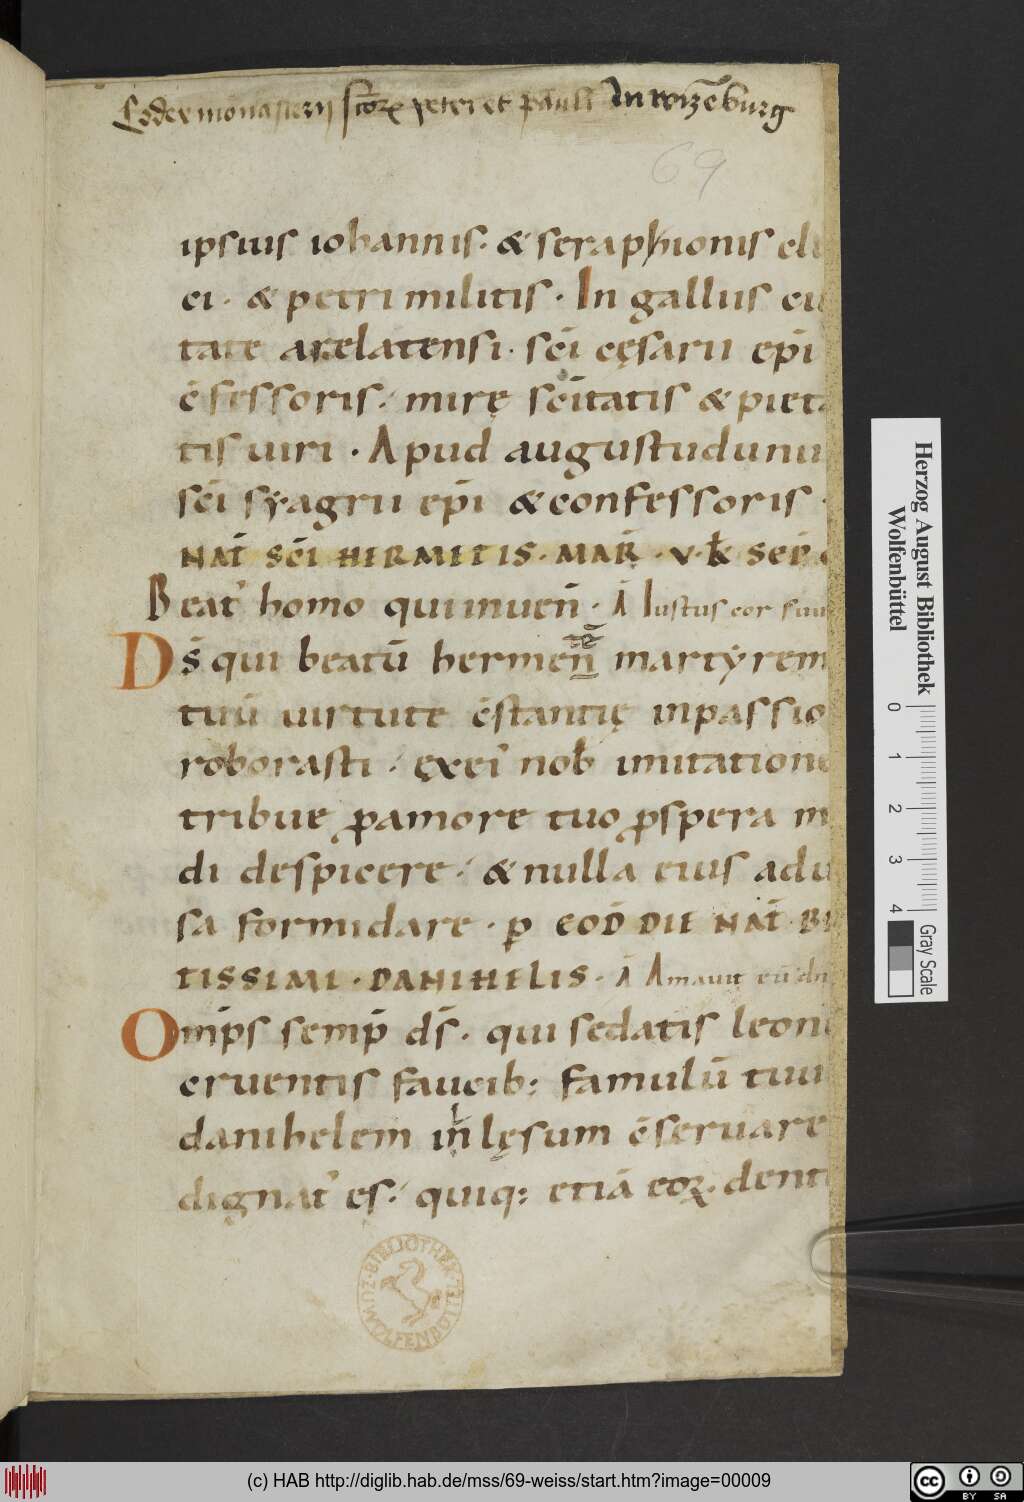 Codex monasterij sctorꝝ petri et pauli In wizēburg
69
ipsius iohannis· & seraphionis cle
ci· & petri militis· In gallus ciu
tate arelatensi· sc̄i cęsarii ep̄i
c̄fessoris· mirę sc̄itatis & pieta
tis uiri· Apud augustudunu
sc̄i syagrii ep̄i & confessoris·
NAT̄ SC̄I HERMETIS· MAR̄· V· K̄ SEP̄
Beat' homo qui inuen̄· A Iustus cor suu
Ds̄ qui beatū hermen̄ tē martẏrem
tuū uirtute c̄stantię inpassio
roborasti· exei nob̄ imitatione
tribue ꝓ amore tuo ꝓspera m
di despicere· & nulla eius adu
sa formidare· ꝑ EOD̄ DIE NAT̄ BE
TISSIMI· DANIHELIS· A Amauit eū dn
Omp̄s semp̄ ds̄· qui sedatis leonu
cruentis faucib; famulū tuu
danihelem inlęsum c̄seruare
dignat' es· quiq; etiā eoꝝ· dent
BIBLIOTHEK
WOLFENBÜTTEL
Herzog August Bibliothek
Wolfenbüttel
0 1 2 3 4
Gray Scale
(c) HAB http://diglib.hab.de/mss/69-weiss/start.htm?image=00009
cc BY SA